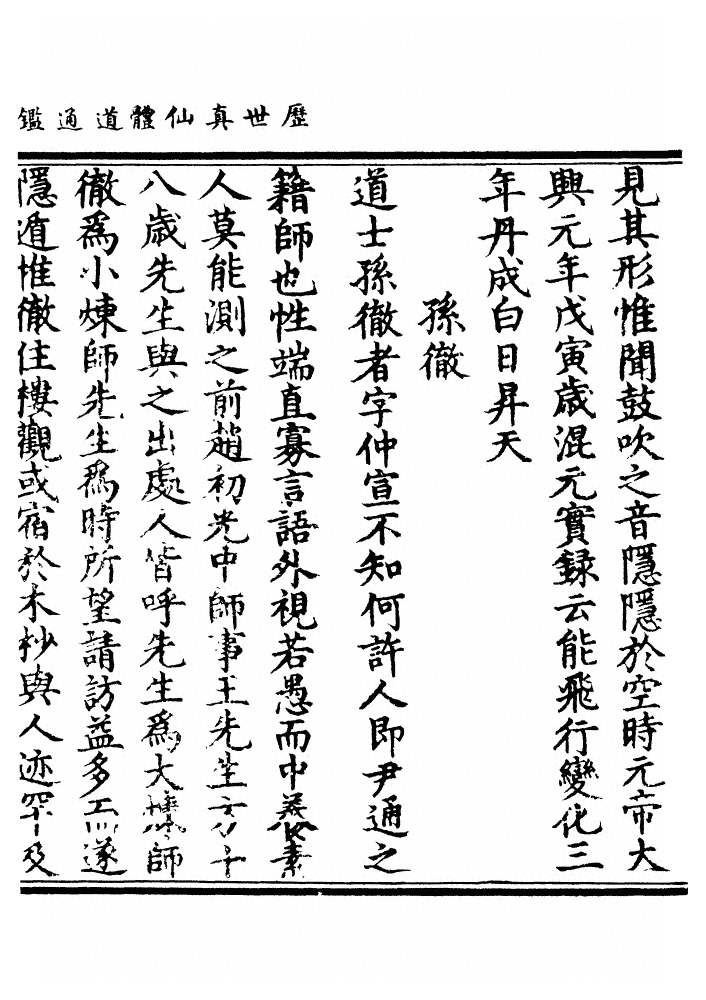 歷世真仙體道通鑑
見其形惟聞鼓吹之音隱隱於空時元帝大
興元年戊寅歲混元實録云能飛行變化三
年丹成白日昇天
孫徹
道士孫徹者字仲宣不知何許人即尹通之
籍師也性端直寡言語外視若愚而中養素
人莫能測之前趙初光中師事王先生方十
八歲先生與之出處人皆呼先生為大煉師
徹為小煉師先生為時所望請訪益多遂
隱遁惟徹住樓觀或宿於木杪與人迹罕及